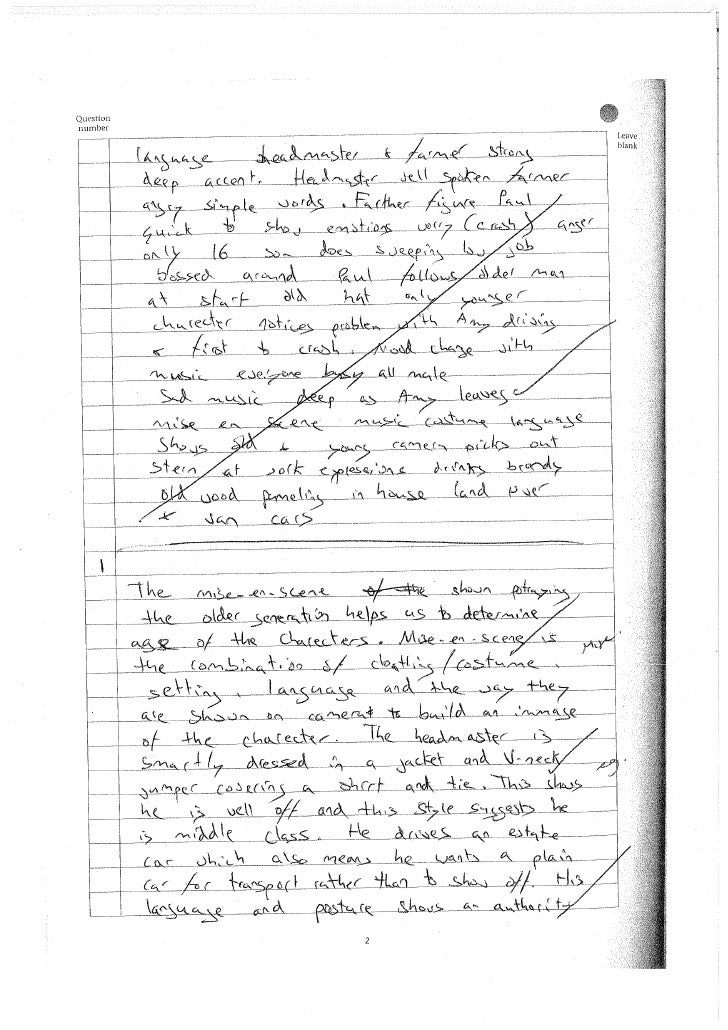 Question
number
Leave
blank
language headmaster & farmer strong
deep accent. Headmaster well spoken farmer
angry simple words. Farther figure Paul
quick to show emotions worry (crash) anger
only 16 son does sweeping low job
bossed around Paul follows older man
at start old hat only younger
charecter notices problem with Amy driving
& first to crash. Mood change with
music everyone busy all male
Sad music deep as Amy leaves
mise en scene music costume language
shows old & young camera picks out
stern at work expressions drinks brandy
old wood panneling in house land rover
& van cars
1
The mise-en-scene of the shown potraying
the older generation helps us to determine
age of the charecters. Mise-en-scene is
the combination of cloathing/costume,
setting, language and the way they
are shown on camera to build an immage
of the charecter. The headmaster is
smartly dressed in a jacket and V-neck
eg.
jumper covering a shirt and tie. This shows
he is well off and this style suggests he
is middle class. He drives an estate
car which also means he wants a plain
car for transport rather than to show off. His
language and posture shows an authority
2